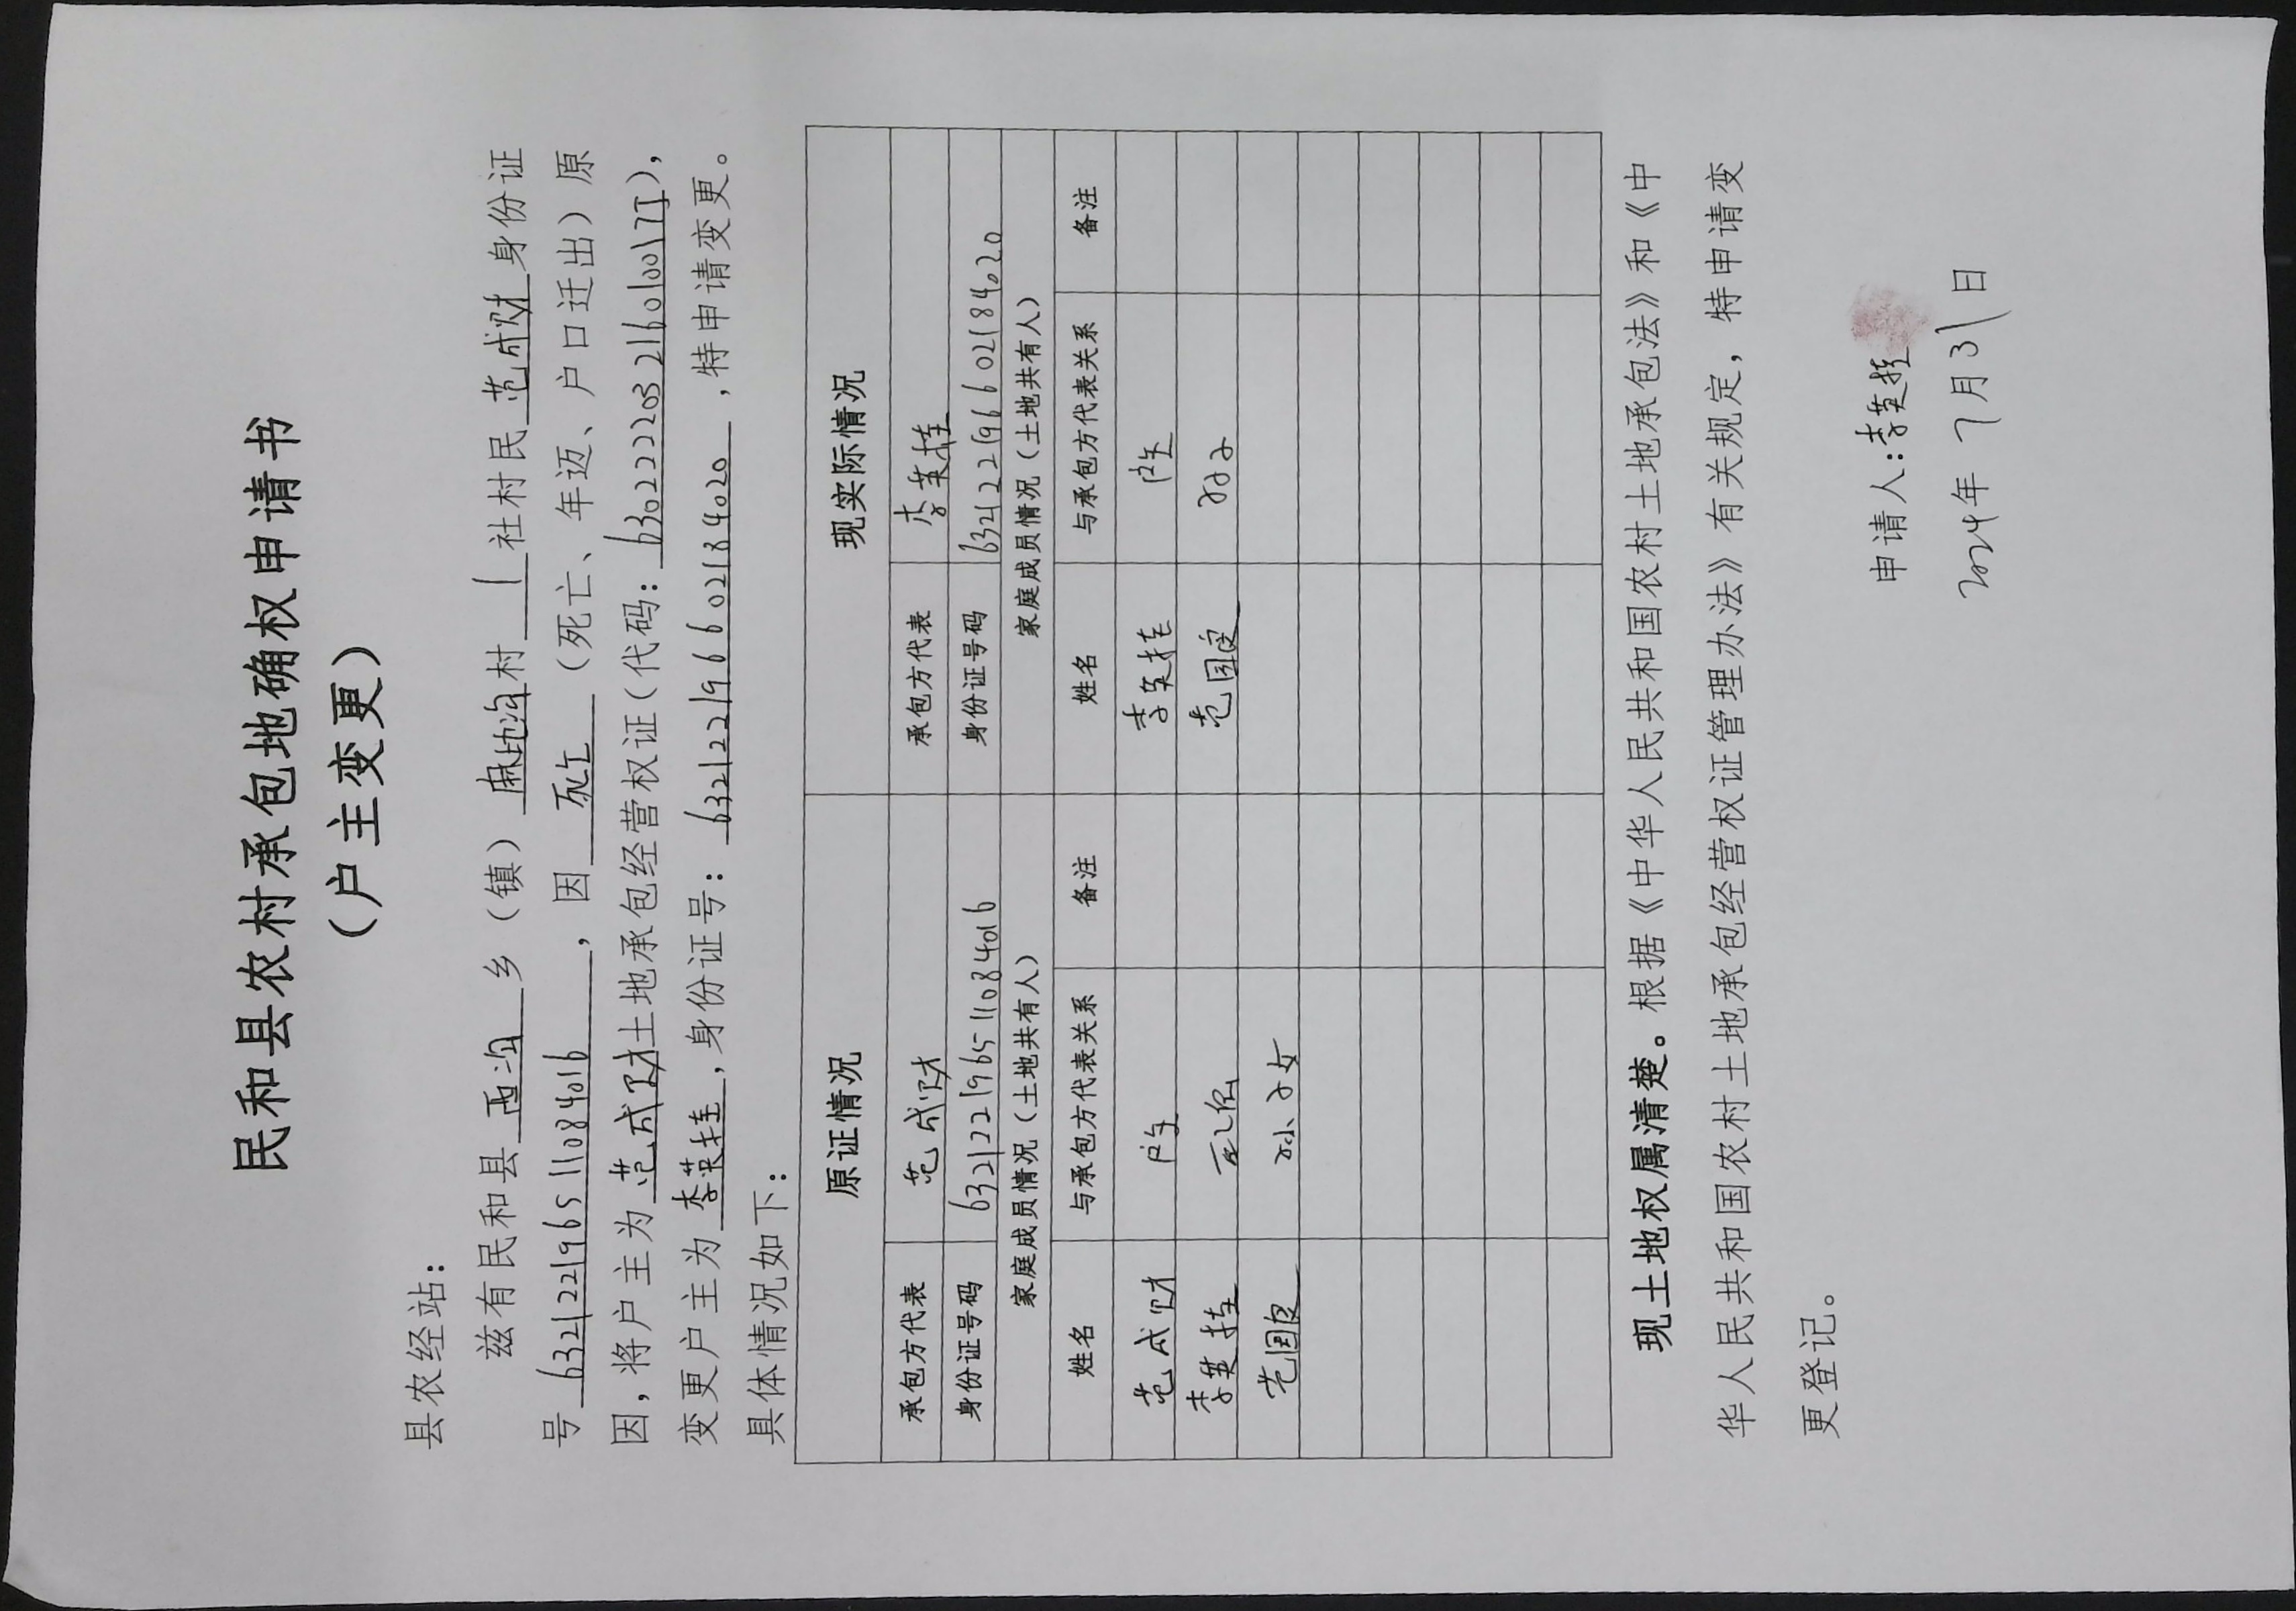 民和县农村承包地确权申请书
（户主变更）
县农经站：
兹有民和县 西沟 乡（镇） 麻地沟 村 1 社村民 范成财 身份证
号 632122196511084016 ，因 死亡 （死亡、年迈、户口迁出）原
因，将户主为 范成财 土地承包经营权证（代码：630222203216010017J），
变更户主为 李英桂 ,身份证号：632122196602184020 ,特申请变更。
具体情况如下：
原证情况 现实际情况
承包方代表 范成财 承包方代表 李英桂
身份证号码 632122196511084016 身份证号码 632122196602184020
家庭成员情况（土地共有人） 家庭成员情况（土地共有人）
姓名 与承包方代表关系 备注 姓名 与承包方代表关系 备注
范成财 户主 李英桂 户主
李英桂 配偶 范国定 孙子
范国定 孙子女
现土地权属清楚。根据《中华人民共和国农村土地承包法》和《中
华人民共和国农村土地承包经营权证管理办法》有关规定，特申请变
更登记。
申请人：李英桂
2024年 7月31日